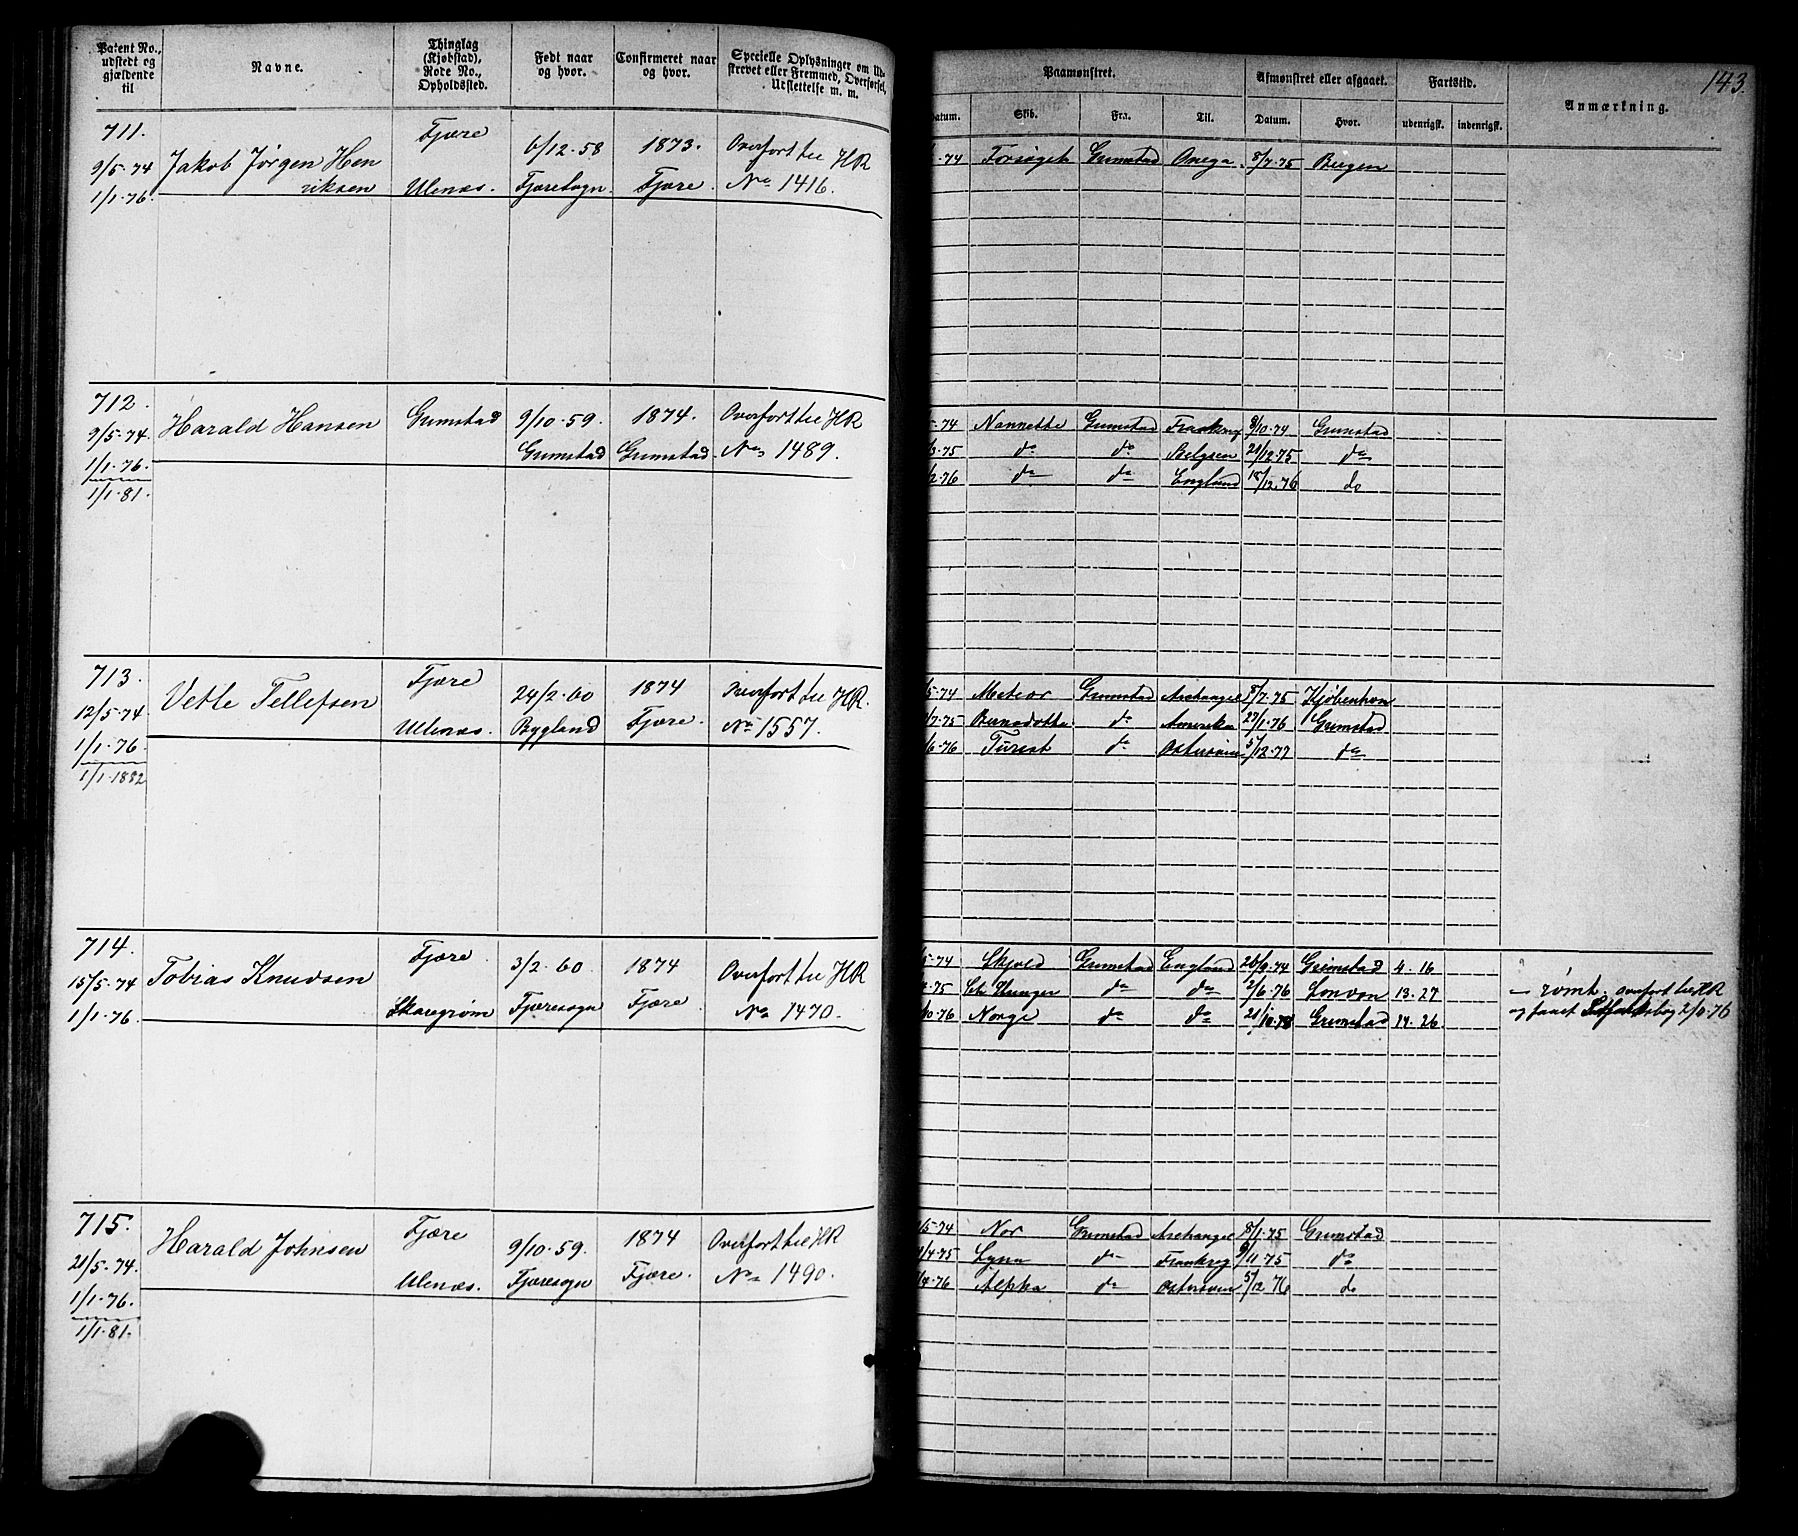 143.
Patent No., udstedt og gjældende til
Navne.
Thinglag (Kjøbstad), Rode No., Opholdssted.
Født naar og hvor.
Confirmeret naar og hvor.
Specielle Oplysninger om Udskrevet eller Fremmed, Overførsel, Udslettelse m. m.
Paamønstret.
Afmønstret eller afgaaet.
Fartstid.
Anmærkning.
Datum. Skib. Fra. Til. Datum. Hvor. udenrigsk. indenrigsk.
711.
9/5-74
1/1-76.
Jakob Jørgen Hen
riksen
Fjære
Ulenæs.
6/12-58
Fjæresogn
1873.
Fjære.
Overført til HR
No 1416.
-74 Forsøget Grimstad Onega 8/7-75 Bergen
712.
9/5-74.
1/1-76.
1/1-81.
Harald Hansen
Grimstad
9/10-59.
Grimstad
1874.
Grimstad
Overført til HR
No 1489.
-74 Nannette Grimstad Frankrig 8/10-74 Grimstad
-75 do do Belgien 20/12-75 do
2-76 do do England 18/12-76 do
713.
12/5-74
1/1-76.
1/1-1882
Vetle Tellefsen
Fjære
Ulenæs.
24/2-60
Bygland
1874
Fjære.
Overført til HR.
No 1557.
/5-74 Meteor Grimstad Archangel /7-75 Kjøbenhavn
/7-75 Bernadotte do Amerika 27/1-76 Grimstad
/6-76 Turist do Østersøen 5/12-77 do
714.
15/5-74
1/1-76.
Tobias Knudsen
Fjære
Skaregrøm
3/2-60
Fjæresogn
1874
Fjære
Overført til HR
No 1470.
/5-74 Skjold Grimstad England 26/9-74 Grimstad 4-16
-75 do do 2/6-76 London 13-27 – rømt. overført til HR
/10-76 Norge do do /10-78 Grimstad 14-26 og faaet 2/10-76
715.
21/5-74.
1/1-76.
1/1-81.
Harald Johnsen
Fjære
Ulenæs.
9/10-59.
Fjæresogn
1874
Fjære.
Overført til HR
No 1490.
/5-74 Nor Grimstad Archangel 8/1-75 Grimstad
/4-75 Lyna do Frankrig 9/11-75 do
/4-76 Alpha do Østersøen 5/12 76 do